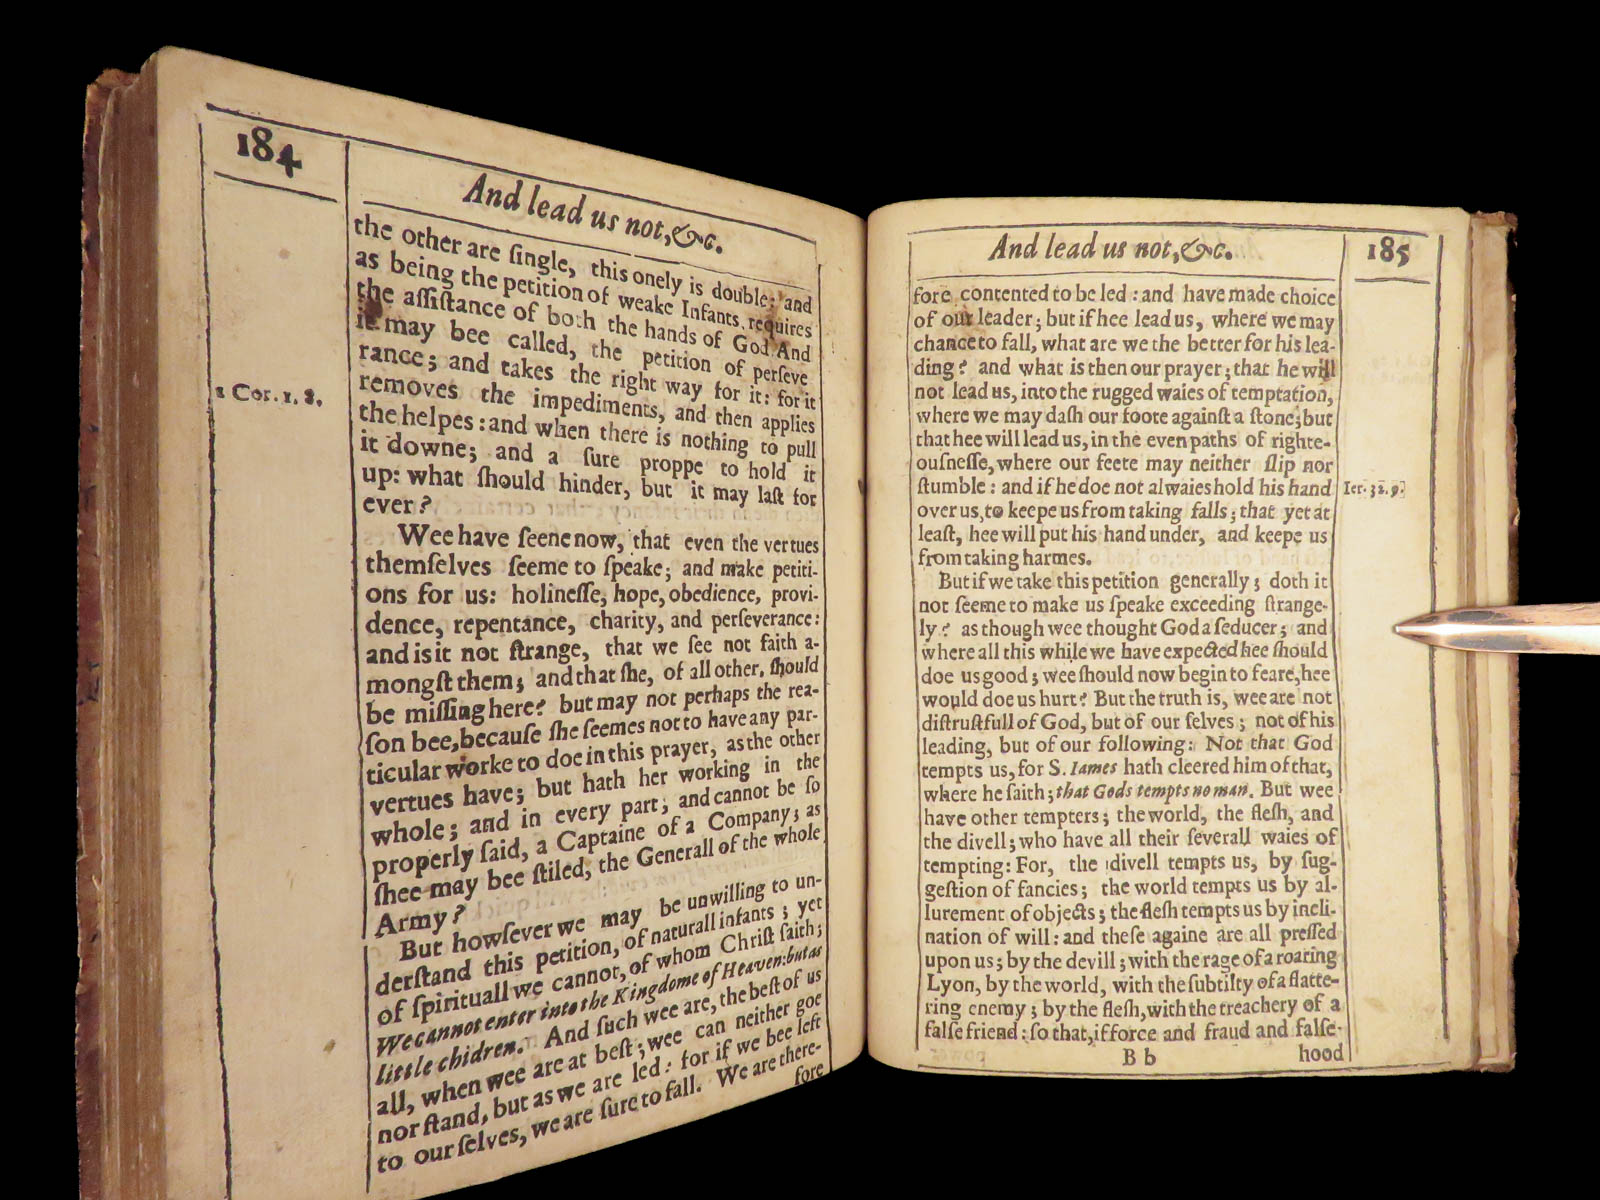 184
And lead us not, &c.
the other are ſingle, this onely is double: and
as being the petition of weake Infants, requires
the aſſiſtance of both the hands of God. And
it may bee called, the petition of perſeve
rance; and takes the right way for it: for it
removes the impediments, and then applies
the helpes: and when there is nothing to pull
it downe; and a ſure proppe to hold it
up: what ſhould hinder, but it may laſt for
ever?
1 Cor. 1. 8.
Wee have ſeene now, that even the vertues
themſelves ſeeme to ſpeake; and make petiti-
ons for us: holineſſe, hope, obedience, provi-
dence, repentance, charity, and perſeverance:
and is it not ſtrange, that we ſee not faith a-
mongſt them; and that ſhe, of all other, ſhould
be miſſing here? but may not perhaps the rea-
ſon bee, becauſe ſhe ſeemes not to have any par-
ticular worke to doe in this prayer, as the other
vertues have; but hath her working in the
whole; and in every part; and cannot be ſo
properly ſaid, a Captaine of a Company; as
ſhee may bee ſtiled, the Generall of the whole
Army?
But howſever we may be unwilling to un-
derſtand this petition, of naturall infants; yet
of ſpirituall we cannot, of whom Chriſt ſaith;
We cannot enter into the Kingdome of Heaven: but as
little chidren. And ſuch wee are, the beſt of us
all, when wee are at beſt; wee can neither goe
nor ſtand, but as we are led: for if we bee left
to our ſelves, we are ſure to fall. We are there-
fore
And lead us not, &c.
185
fore contented to be led: and have made choice
of our leader; but if hee lead us, where we may
chance to fall, what are we the better for his lea-
ding? and what is then our prayer; that he will
not lead us, into the rugged waies of temptation,
where we may daſh our foote againſt a ſtone; but
that hee will lead us, in the even paths of righte-
ouſneſſe, where our feete may neither ſlip nor
ſtumble: and if he doe not alwaies hold his hand
Ier. 31. 9.
over us, to keepe us from taking falls; that yet at
leaſt, hee will put his hand under, and keepe us
from taking harmes.
But if we take this petition generally; doth it
not ſeeme to make us ſpeake exceeding ſtrange-
ly? as though wee thought God a ſeducer; and
where all this while we have expected hee ſhould
doe us good; wee ſhould now begin to feare, hee
would doe us hurt? But the truth is, wee are not
diſtruſtfull of God, but of our ſelves; not of his
leading, but of our following: Not that God
tempts us, for S. Iames hath cleered him of that,
where he ſaith; that Gods tempts no man. But wee
have other tempters; the world, the fleſh, and
the divell; who have all their ſeverall waies of
tempting: For, the divell tempts us, by ſug-
geſtion of fancies; the world tempts us by al-
lurement of objects; the fleſh tempts us by incli-
nation of will: and theſe againe are all preſſed
upon us; by the devill; with the rage of a roaring
Lyon, by the world, with the ſubtilty of a flatte-
ring enemy; by the fleſh, with the treachery of a
falſe friend: ſo that, if force and fraud and falſe-
B b
hood